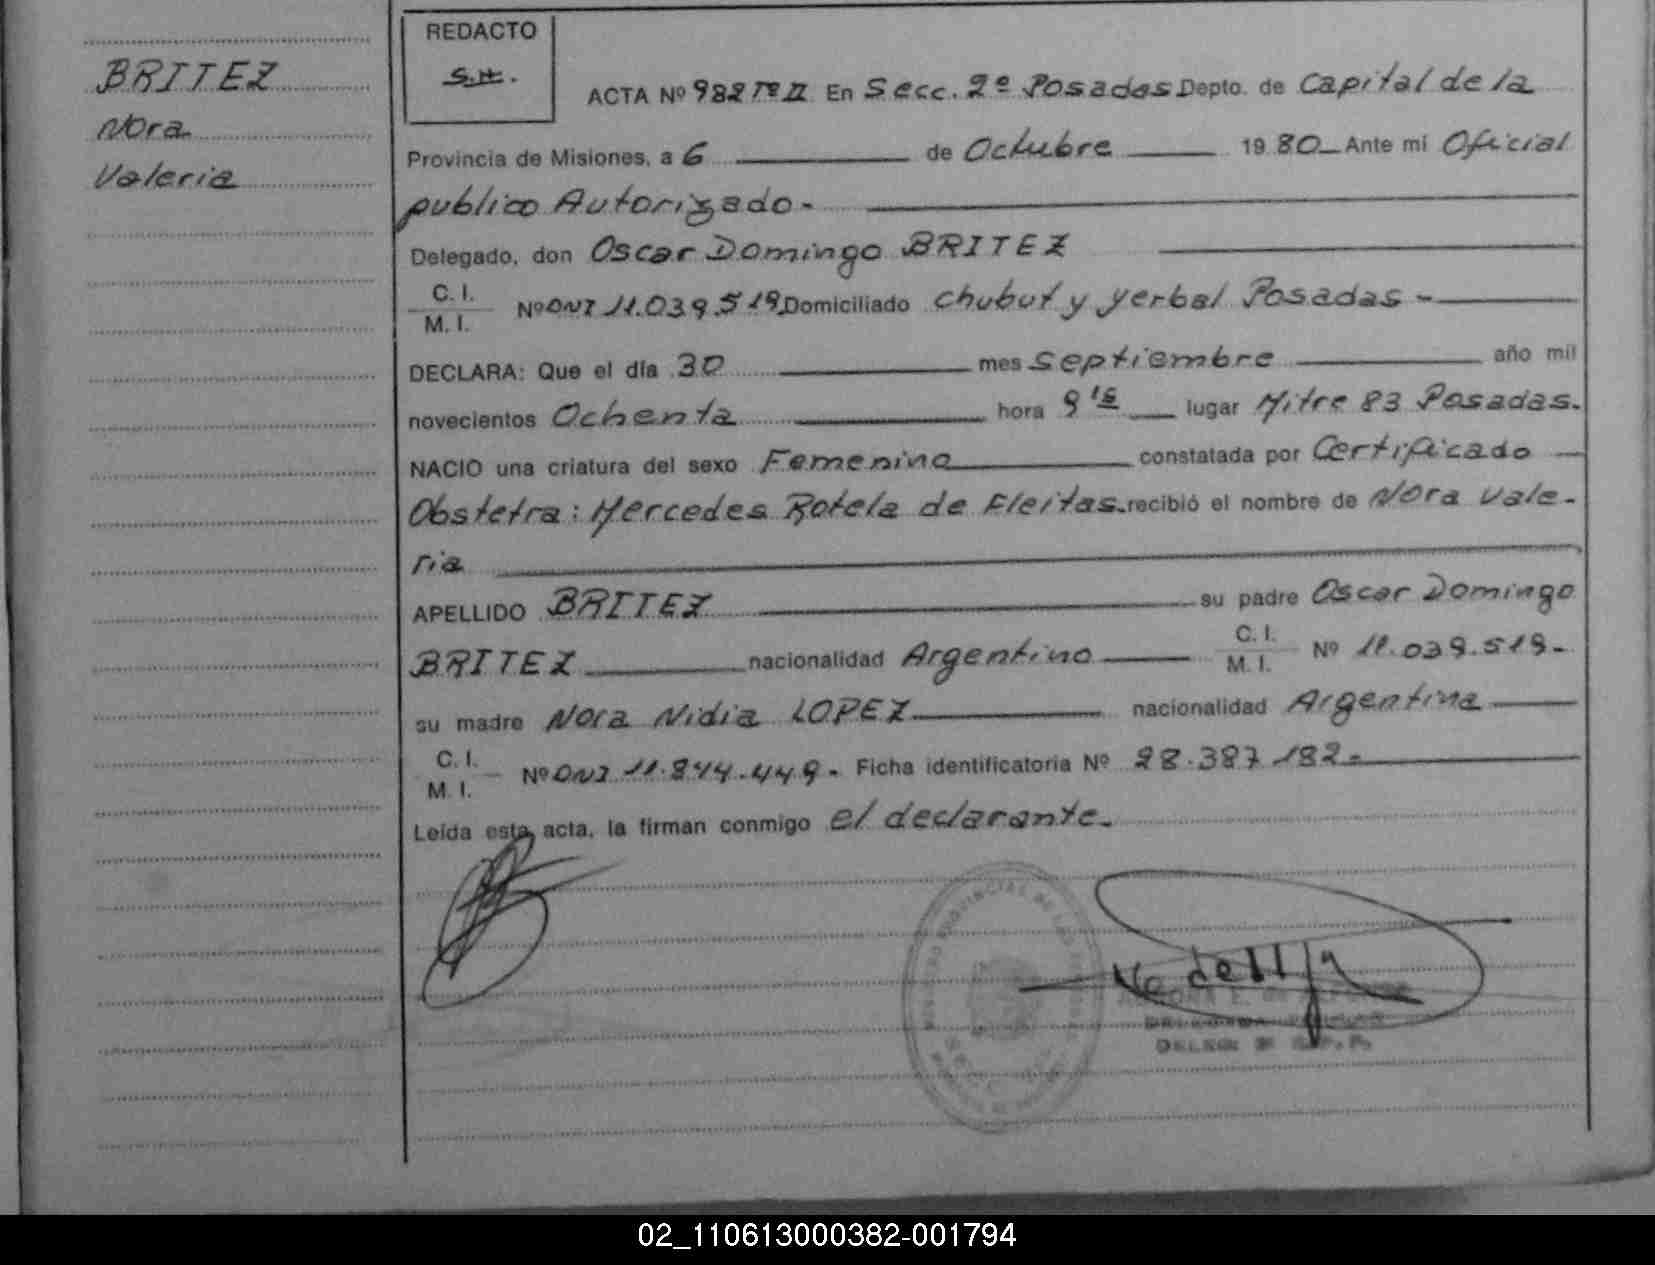 BRITEZ
Nora
Valeria
REDACTO
S.H.
ACTA Nº 982 Tº II En Secc. 2º Posadas Depto. de Capital de la
Provincia de Misiones, a 6 de Octubre 1980 Ante mi Oficial
publico Autorizado-
Delegado, don Oscar Domingo BRITEZ
C. I.
M. I.
Nº DNI 11.039.519 Domiciliado Chubut y yerbal Posadas -
DECLARA: Que el día 30 mes septiembre año mil
novecientos Ochenta hora 9 15 lugar Mitre 83 Posadas.
NACIO una criatura del sexo Femenino constatada por Certificado
Obstetra: Mercedes Rotela de Fleitas. recibió el nombre de Nora Vale-
ria
APELLIDO BRITEZ su padre Oscar Domingo
BRITEZ nacionalidad Argentino C. I. M. I. Nº 11.039.519-
su madre Nora Nidia LOPEZ nacionalidad Argentina
C. I.
M. I.
Nº DNI 11.844.449- Ficha identificatoria Nº 28.387.182-
Leída esta acta, la firman conmigo el declarante.
02_110613000382-001794